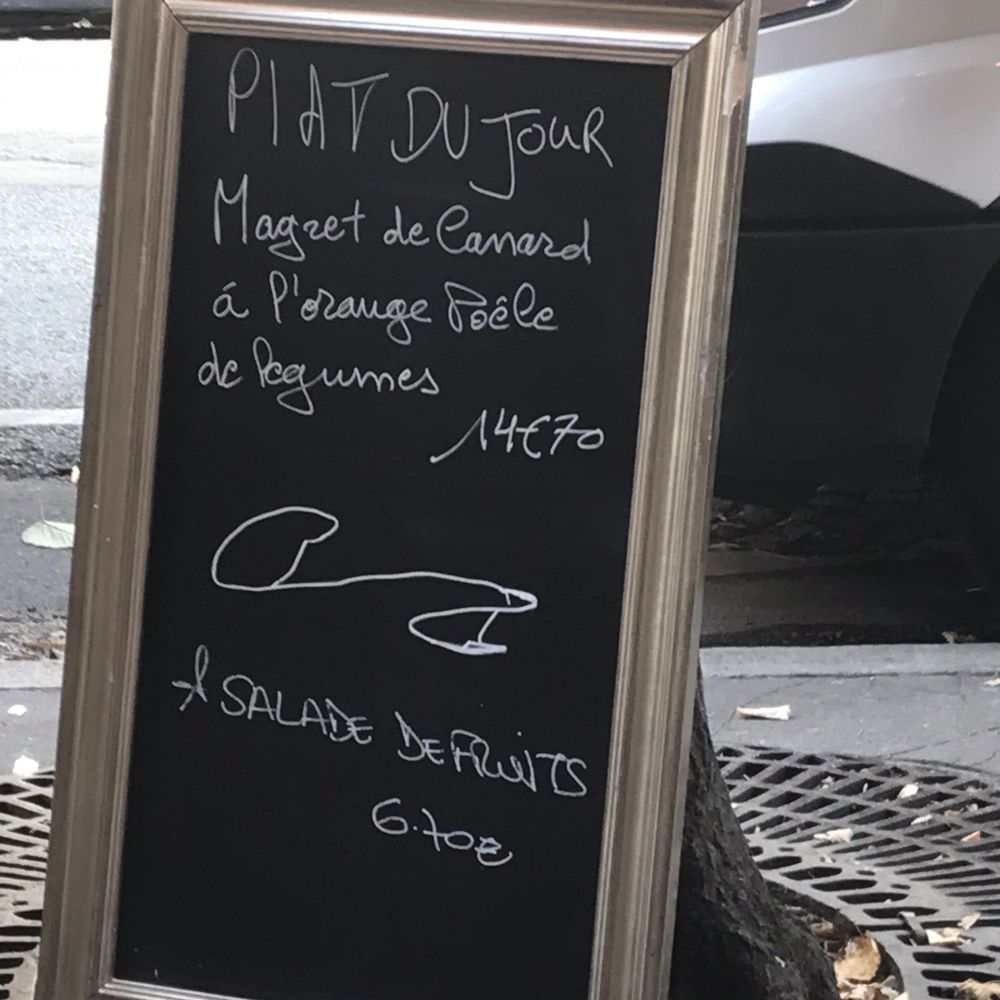 PLAT DU JOUR
Magret de Canard
á l'orange Poêle
de legumes
14€70
SALADE DE FRUITS
6.70€